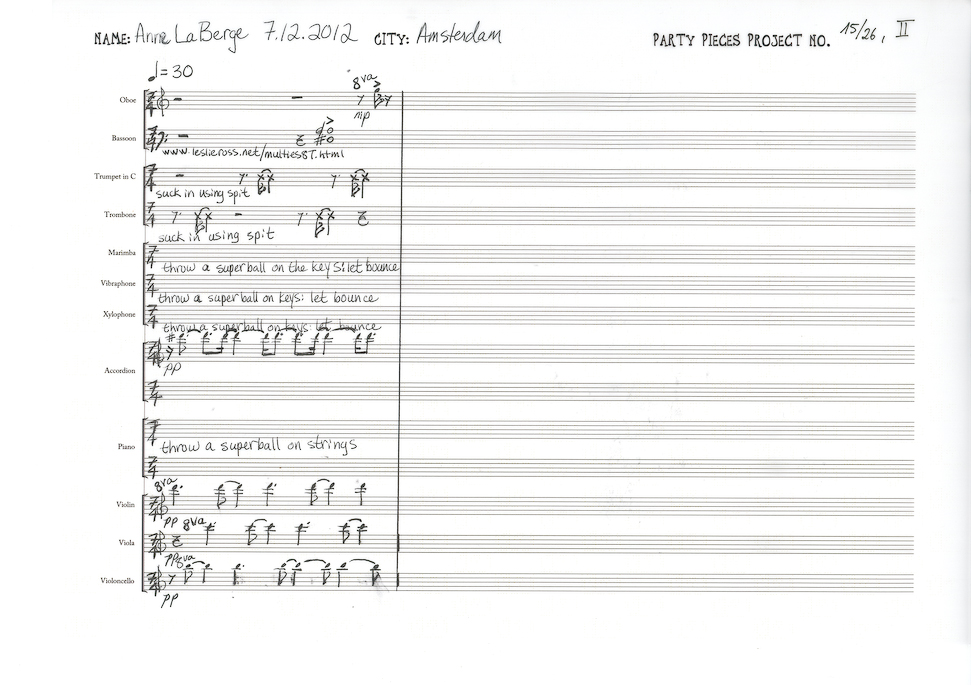 NAME: Anne LaBerge 7.12.2012 CITY: Amsterdam PARTY PIECES PROJECT NO. 15/26, II
♩=30
8va
Oboe
nip
Bassoon
www.leslieross.net/multiesBT.html
Trumpet in C 7/4
suck in using spit
Trombone 7/4
suck in using spit
Marimba 7/4
throw a superball on the keys: let bounce
Vibraphone 7/4
throw a superball on keys: let bounce
Xylophone 7/4
throw a superball on keys: let bounce
pp
Accordion
7/4
7/4
Piano
throw a superball on strings
7/4
8va
Violin
pp 8va
Viola
pp 8va
Violoncello
pp